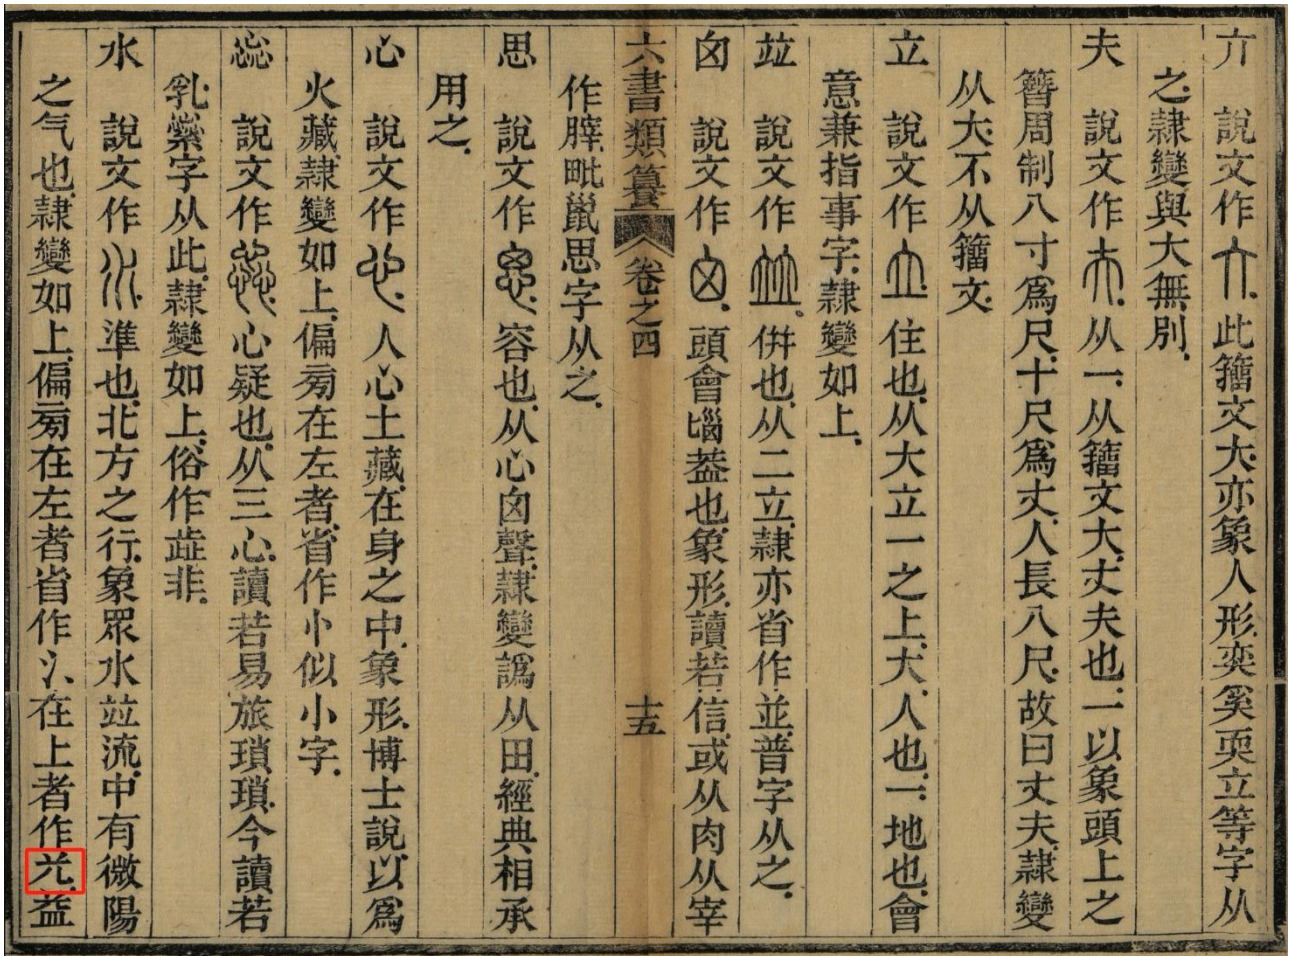 亣 說文作。此籒文大。亦象人形。奕奚耎立等字从
之。隷變與大無別。
夫 說文作。从一。从籒文大。丈夫也。一以象頭上之
簪。周制八寸爲尺。十尺爲丈。人長八尺。故曰丈夫。隷變
从大。不从籒文。
立 說文作。住也。从大立一之上。大。人也。一。地也。會
意兼指事字。隷變如上。
竝 說文作。併也。从二立。隷亦省作並。普字从之。
囟 說文作。頭會匘葢也。象形。讀若信。或从肉从宰
六書類纂 卷之四 十五
作䏁。毗鼠思字从之。
思 說文作。容也。从心囟聲。隷變譌从田。經典相承
用之。
心 說文作。人心土藏。在身之中。象形。博士說以爲
火藏。隷變如上。偏㫄在左者。省作忄。似小字。
惢 說文作。心疑也。从三心。讀若易旅瑣瑣。今讀若
乳。繠字从此。隷變如上。俗作蕋非。
水 說文作。準也。北方之行。象眾水竝流。中有微陽
之气也。隷變如上。偏㫄在左者省作氵。在上者作。益